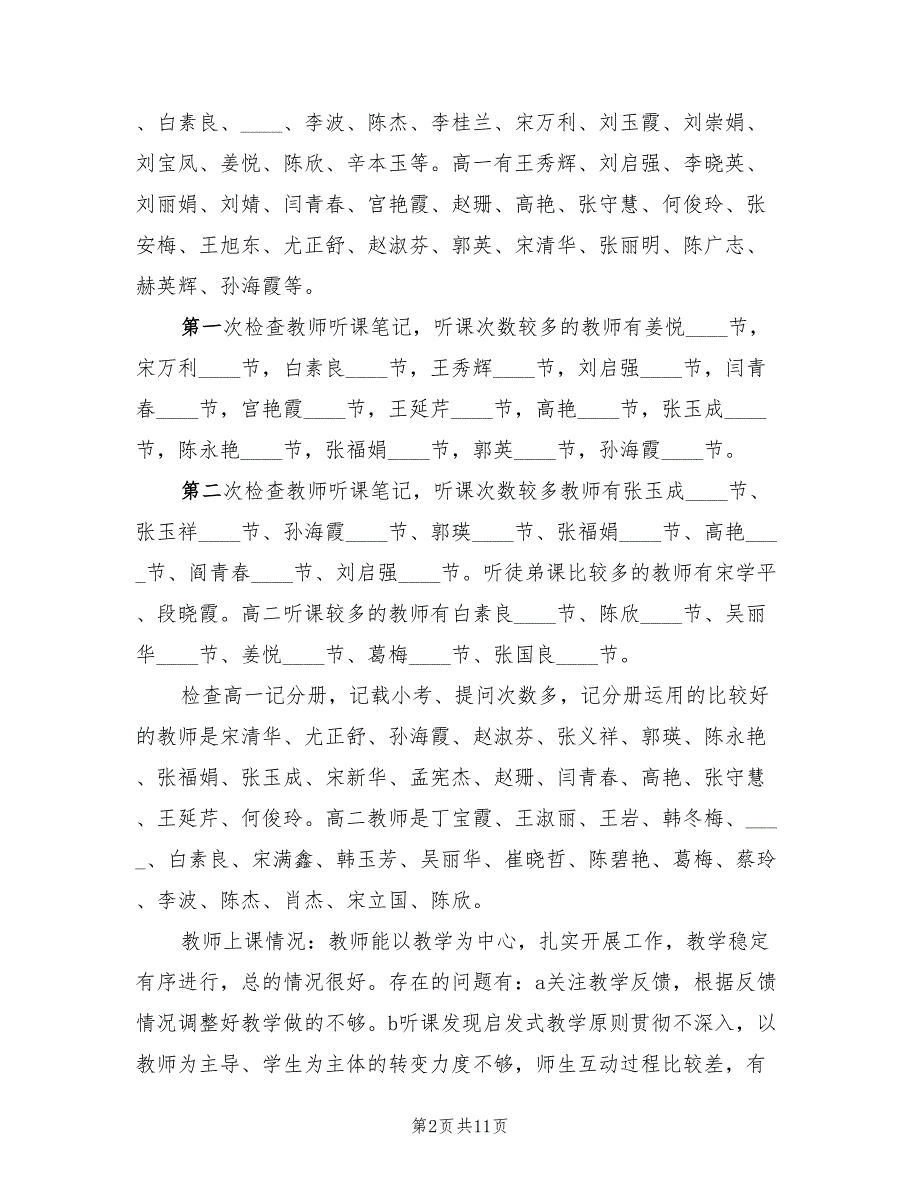 、白素良、____、李波、陈杰、李桂兰、宋万利、刘玉霞、刘崇娟、
刘宝凤、姜悦、陈欣、辛本玉等。高一有王秀辉、刘启强、李晓英、
刘丽娟、刘婧、闫青春、宫艳霞、赵珊、高艳、张守慧、何俊玲、张
安梅、王旭东、尤正舒、赵淑芬、郭英、宋清华、张丽明、陈广志、
赫英辉、孙海霞等。
第一次检查教师听课笔记，听课次数较多的教师有姜悦____节，
宋万利____节，白素良____节，王秀辉____节，刘启强____节，闫青
春____节，宫艳霞____节，王延芹____节，高艳____节，张玉成____
节，陈永艳____节，张福娟____节，郭英____节，孙海霞____节。
第二次检查教师听课笔记，听课次数较多教师有张玉成____节、
张玉祥____节、孙海霞____节、郭瑛____节、张福娟____节、高艳___
_节、阎青春____节、刘启强____节。听徒弟课比较多的教师有宋学平
、段晓霞。高二听课较多的教师有白素良____节、陈欣____节、吴丽
华____节、姜悦____节、葛梅____节、张国良____节。
检查高一记分册，记载小考、提问次数多，记分册运用的比较好
的教师是宋清华、尤正舒、孙海霞、赵淑芬、张义祥、郭瑛、陈永艳
、张福娟、张玉成、宋新华、孟宪杰、赵珊、闫青春、高艳、张守慧
、王延芹、何俊玲。高二教师是丁宝霞、王淑丽、王岩、韩冬梅、___
_、白素良、宋满鑫、韩玉芳、吴丽华、崔晓哲、陈碧艳、葛梅、蔡玲
、李波、陈杰、肖杰、宋立国、陈欣。
教师上课情况：教师能以教学为中心，扎实开展工作，教学稳定
有序进行，总的情况很好。存在的问题有：a关注教学反馈，根据反馈
情况调整好教学做的不够。b听课发现启发式教学原则贯彻不深入，以
教师为主导、学生为主体的转变力度不够，师生互动过程比较差，有
第2页共11页